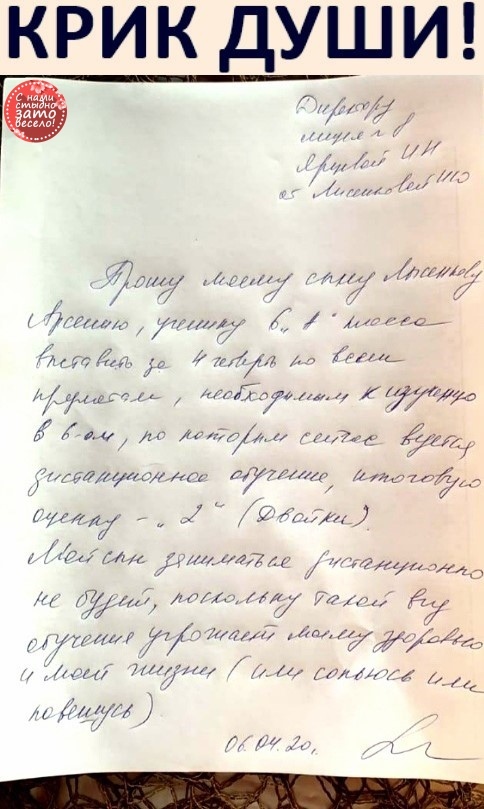 КРИК ДУШИ!
С нами
стыдно
зато
весело!
Директору
лицея № 8
Ярцевой И Н
от Лысенковой Ю
Прошу моему сыну Лысенкову
Арсению, ученику 6 „А" класса
выставить за 4 четверть по всем
предметам, необходимым к изучению
в 6-ом, по которым сейчас ведется
дистанционное обучение, итоговую
оценку – „2" (Двойки).
Мой сын заниматься дистанционно
не будет, поскольку такой вид
обучения угрожает моему здоровью
и моей жизни (или сопьюсь или
повешусь)
06.04.20г.